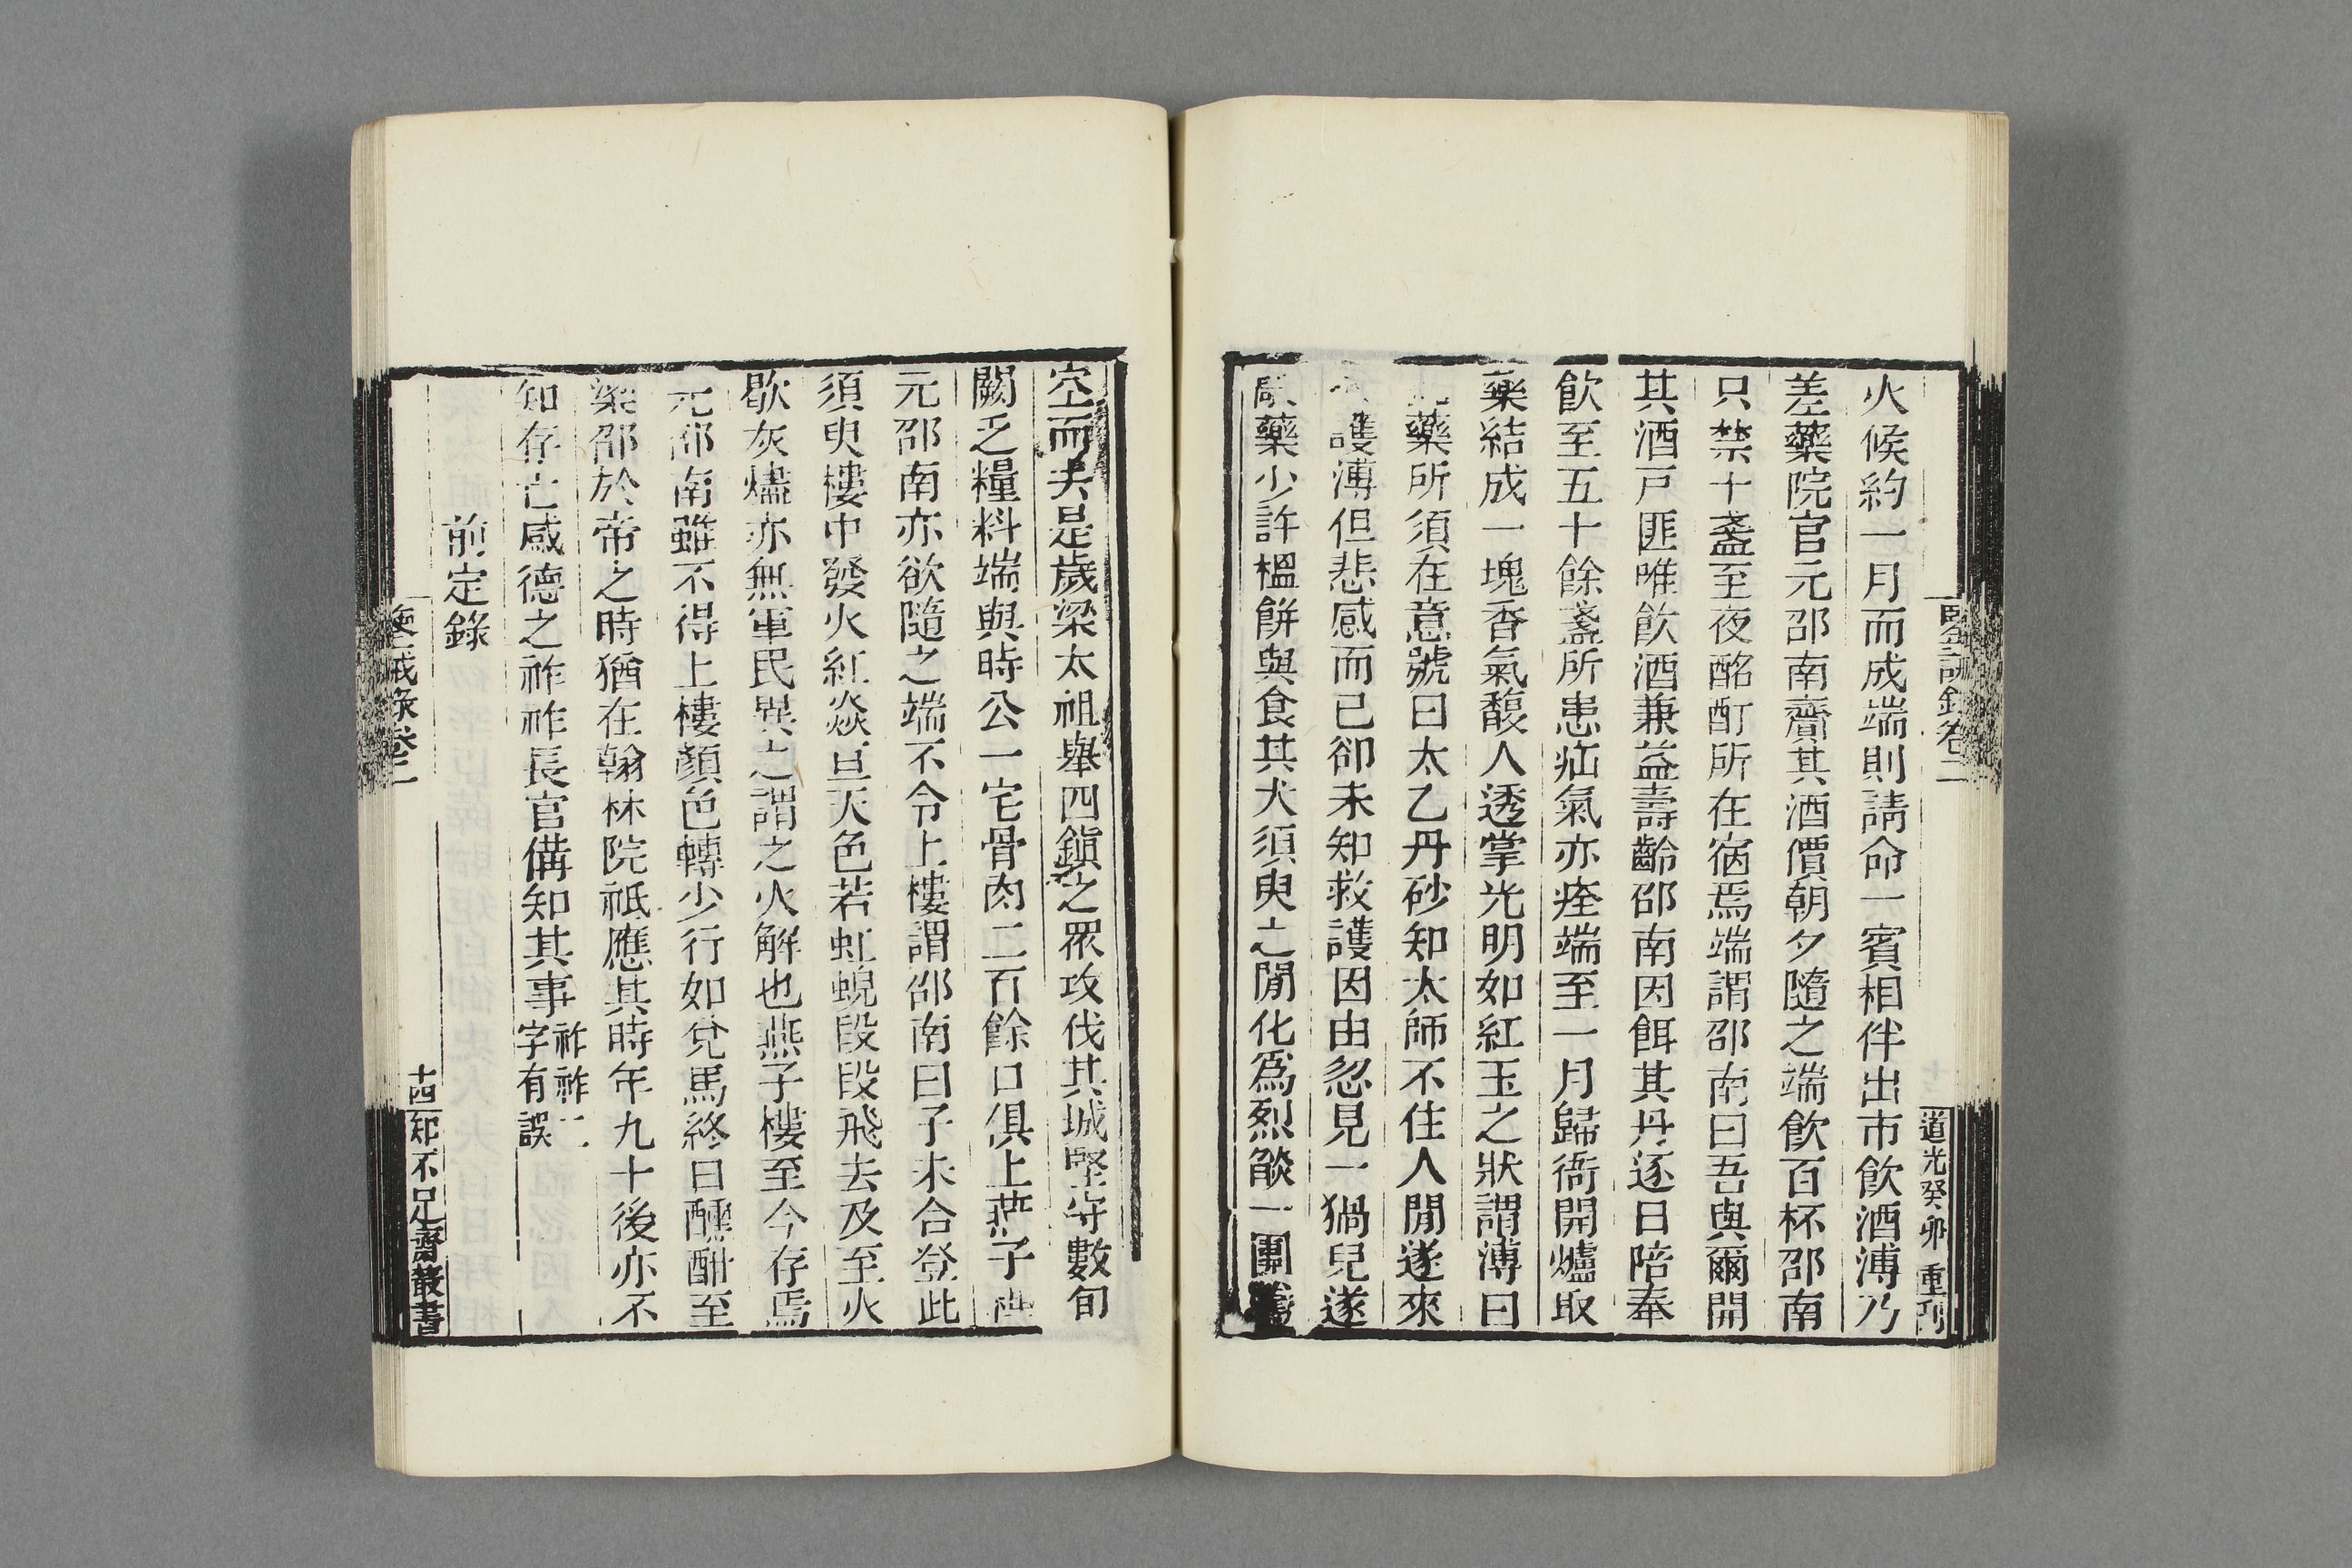 鑒誡錄卷二
道光癸卯重刋
火候約一月而成端則請命一賓相伴出市飲酒溥乃
差藥院官元邵南齎其酒價朝夕隨之端飲百杯邵南
只禁十盞至夜酩酊所在宿焉端謂邵南曰吾與爾開
其酒戸匪唯飲酒兼益壽齡邵南因餌其丹逐日陪奉
飲至五十餘盞所患疝氣亦痊端至一月歸衙開爐取
藥結成一塊香氣馥人透掌光明如紅玉之狀謂溥曰
藥所須在意號曰太乙丹砂知太師不住人閒遂來
護溥但悲感而已卻未知救護因由忽見一猧兒遂
藥少許榅餅與食其犬須臾之閒化為烈燄一團
空而失是歲梁太祖舉四鎮之眾攻伐其城堅守數旬
闕乏糧料端與時公一宅骨肉二百餘口俱上燕子
元邵南亦欲隨之端不令上樓謂邵南曰子未合登此
須臾樓中發火紅焱亘天色若虹蜺段段飛去及至火
歇灰燼亦無軍民異之謂之火解也燕子樓至今存焉
元邵南雖不得上樓顏色轉少行如兌馬終日醺酣至
梁邵於帝之時猶在翰林院祗應其時年九十後亦不
知存亡感德之祚祚長官備知其事祚祚二字有誤
前定錄
鑒誡錄卷二
十四
知不足齋叢書